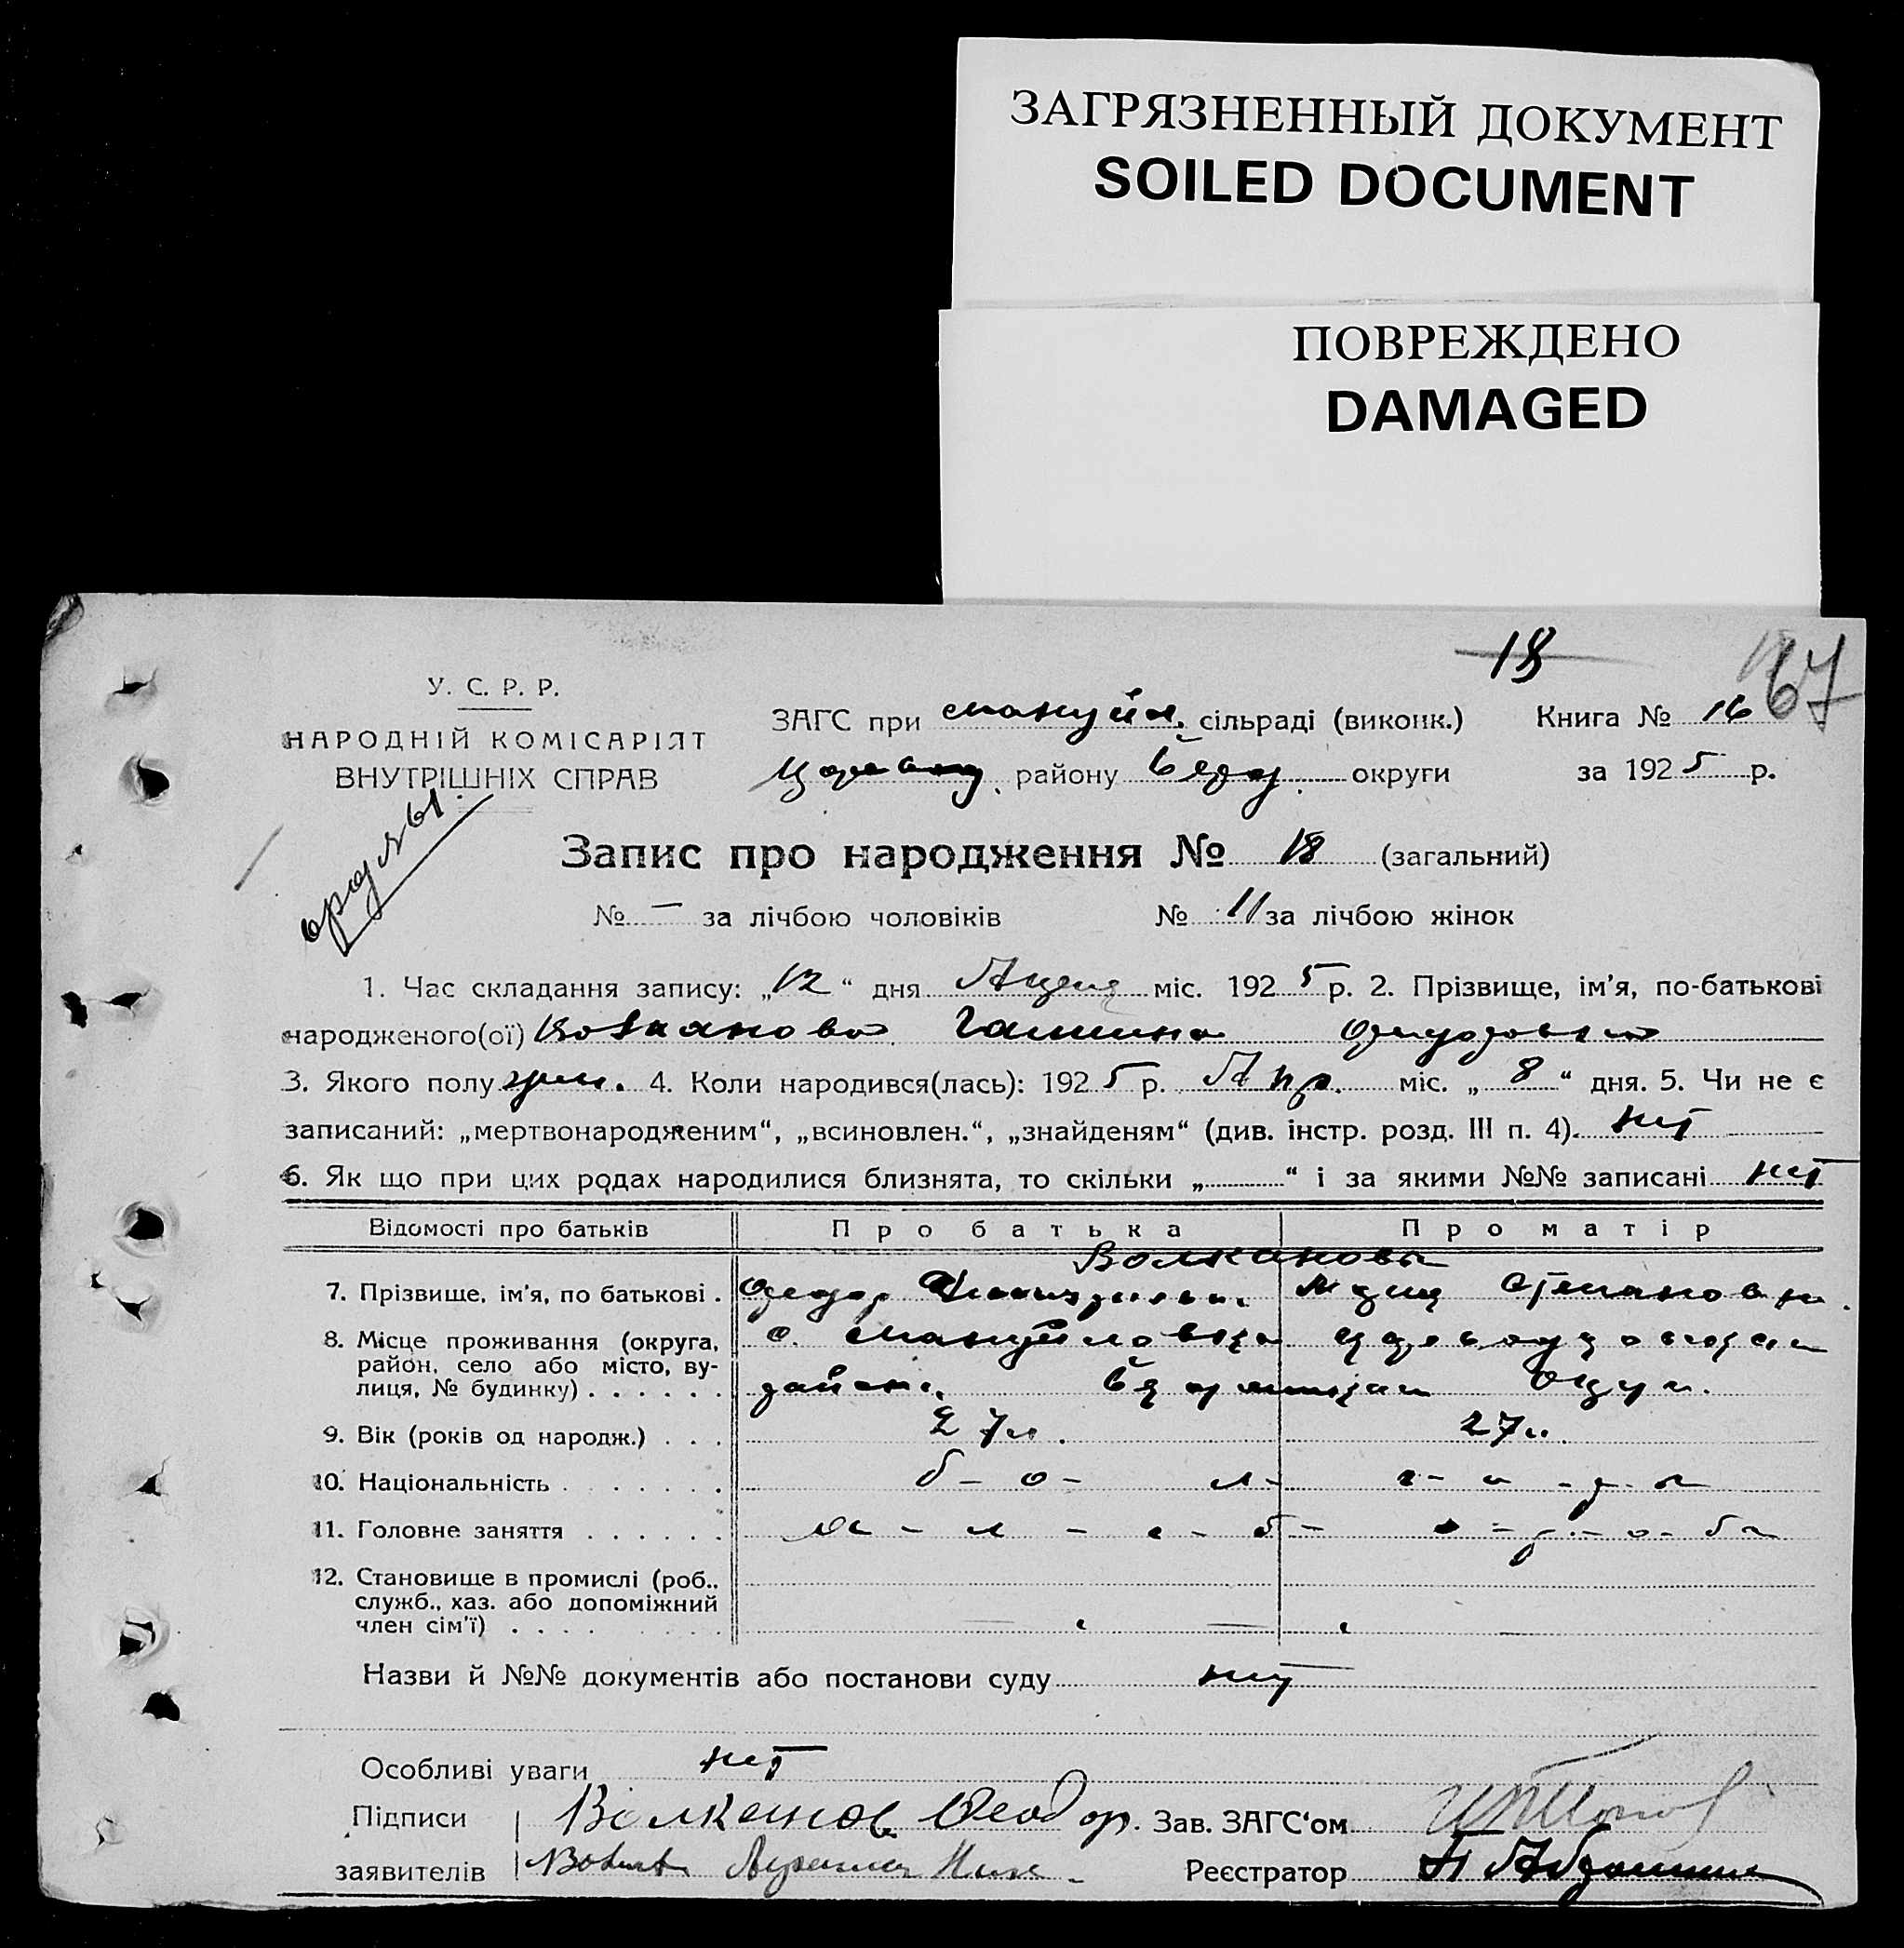 ЗАГРЯЗНЕННЫЙ ДОКУМЕНТ
SOILED DOCUMENT
ПОВРЕЖДЕНО
DAMAGED
18
67
У. С. Р. Р.
НАРОДНІЙ КОМІСАРІЯТ
ВНУТРІШНІХ СПРАВ
ЗАГС при мануйл. сільраді (виконк.) Книга № 16
району округи за 1925 р.
Запис про народження № 18 (загальний)
№ — за лічбою чоловіків № 11 за лічбою жінок
1. Час складання запису: „12“ дня Апреля міс. 1925 р. 2. Прізвище, ім'я, по-батькові
народженого(ої) Волканова
3. Якого полу жен. 4. Коли народився(лась): 1925 р. Апр. міс. „8“ дня. 5. Чи не є
записаний: „мертвонародженим“, „всиновлен.“, „знайденям“ (див. інстр. розд. III п. 4). нет
6. Як що при цих родах народилися близнята, то скільки „ “ і за якими №№ записані нет
Відомості про батьків Про батька Про матір
Волкановы
7. Прізвище, ім'я, по батькові . Федор Степановна.
8. Місце проживання (округа, с. Мануйловка
район, село або місто, ву-
лиця, № будинку) . . . . . . района
9. Вік (років од народж.) . . . 27 л. 27 л.
10. Національність . . . . . . . б-о-л-г-а-р-ы
11. Головне заняття . . . . . . х-л-е-б-о-р-о-бы
12. Становище в промислі (роб.,
служб., хаз. або допоміжний
член сім'ї) . . . .
Назви й №№ документів або постанови суду нет
Особливі уваги нет
Підписи Волканов Феодор. Зав. ЗАГС'ом
заявителів Реєстратор